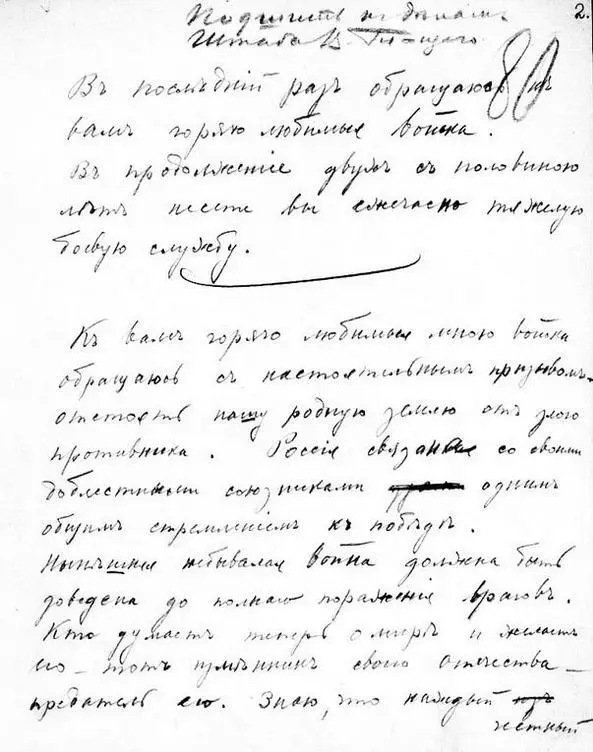 2.
Подшить къ дѣламъ
Штаба В.
80
Въ послѣдній разъ обращаюсь къ
вамъ горячо любимыя войска.
Въ продолженіе двухъ съ половиною
лѣтъ несете вы ежечасно тяжелую
боевую службу.
Къ вамъ горячо любимыя мною войска
обращаюсь съ настоятельнымъ призывомъ-
отстоять нашу родную землю отъ злого
противника. Россія связана со своими
доблестными союзниками однимъ
общимъ стремленіемъ къ побѣдѣ.
Нынѣшняя небывалая война должна быть
доведена до полнаго пораженія враговъ.
Кто думаетъ теперь о мирѣ и желаетъ
его – тотъ измѣнникъ своего отечества –
предатель его. Знаю, что каждый
честный